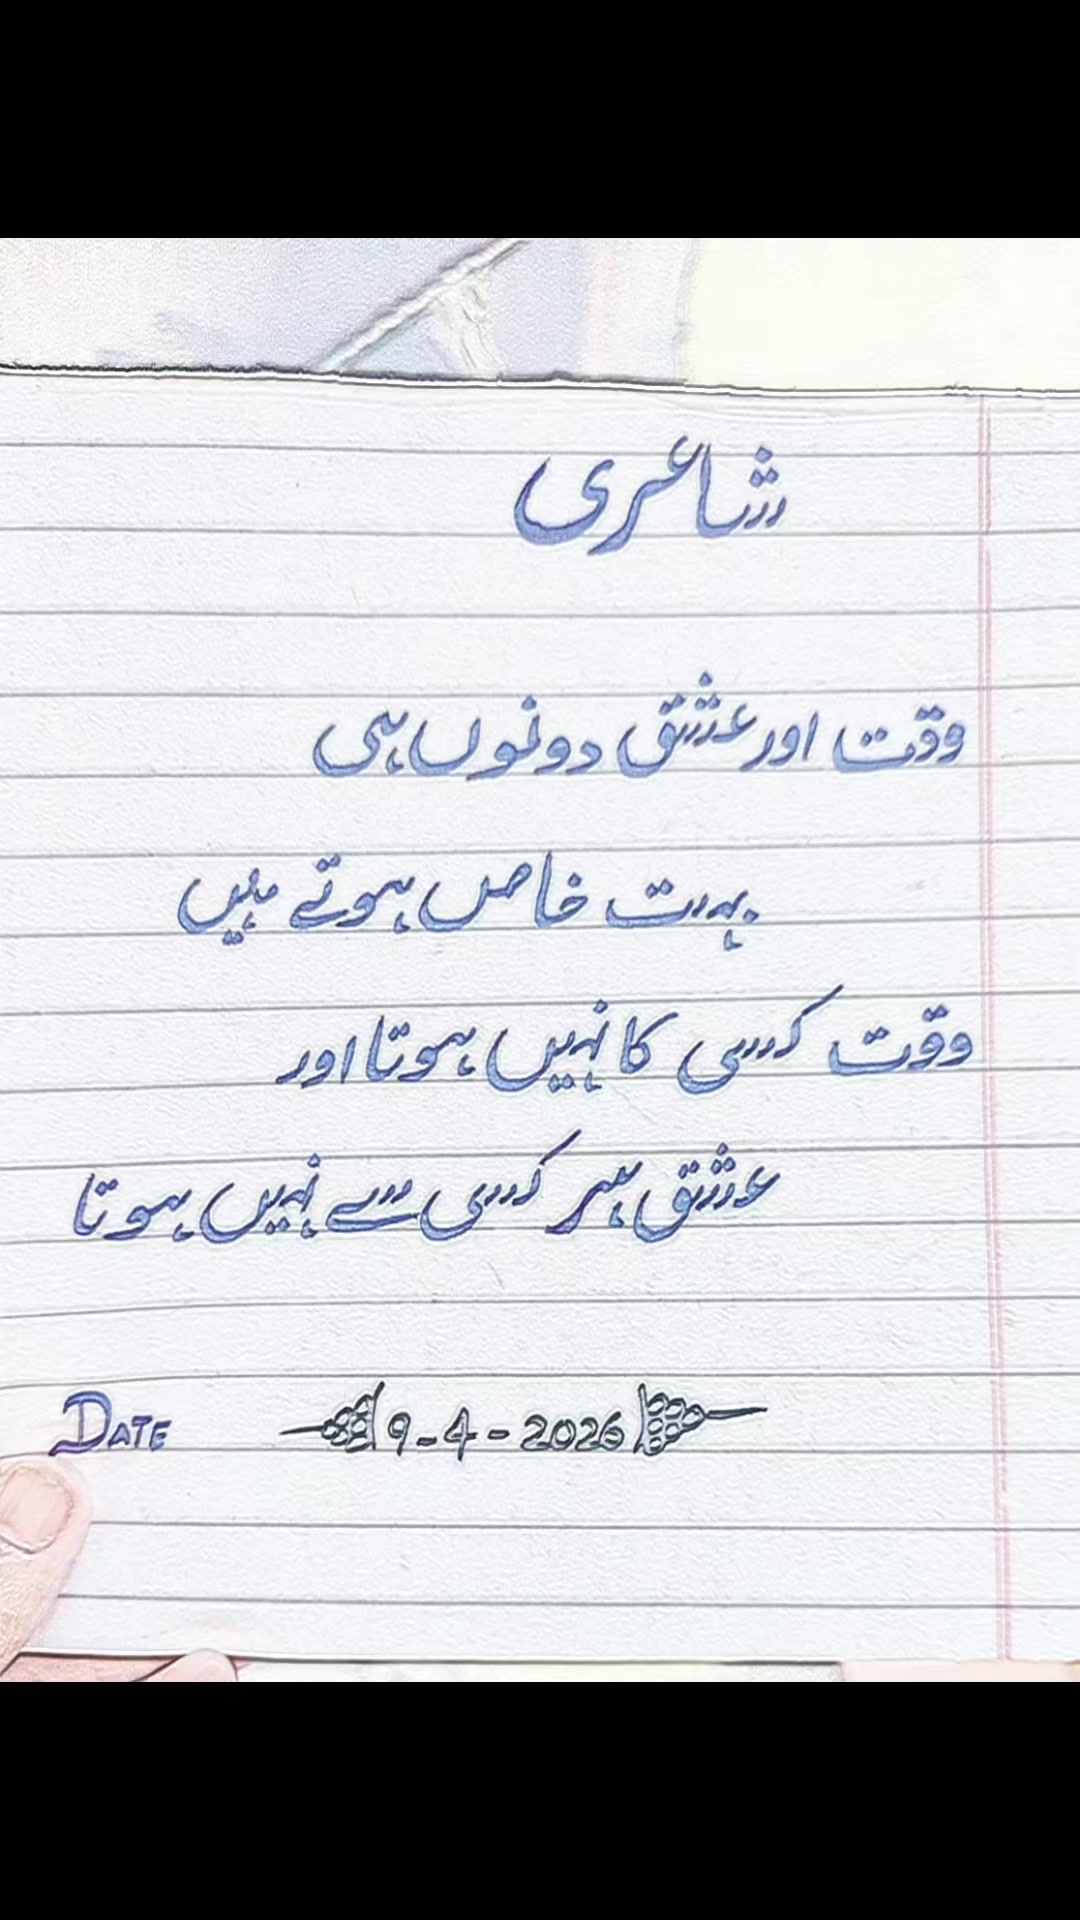 شاعری
وقت اور عشق دونوں ہی
بہت خاص ہوتے ہیں
وقت کسی کا نہیں ہوتا اور
عشق ہر کسی سے نہیں ہوتا
DATE 9-4-2026